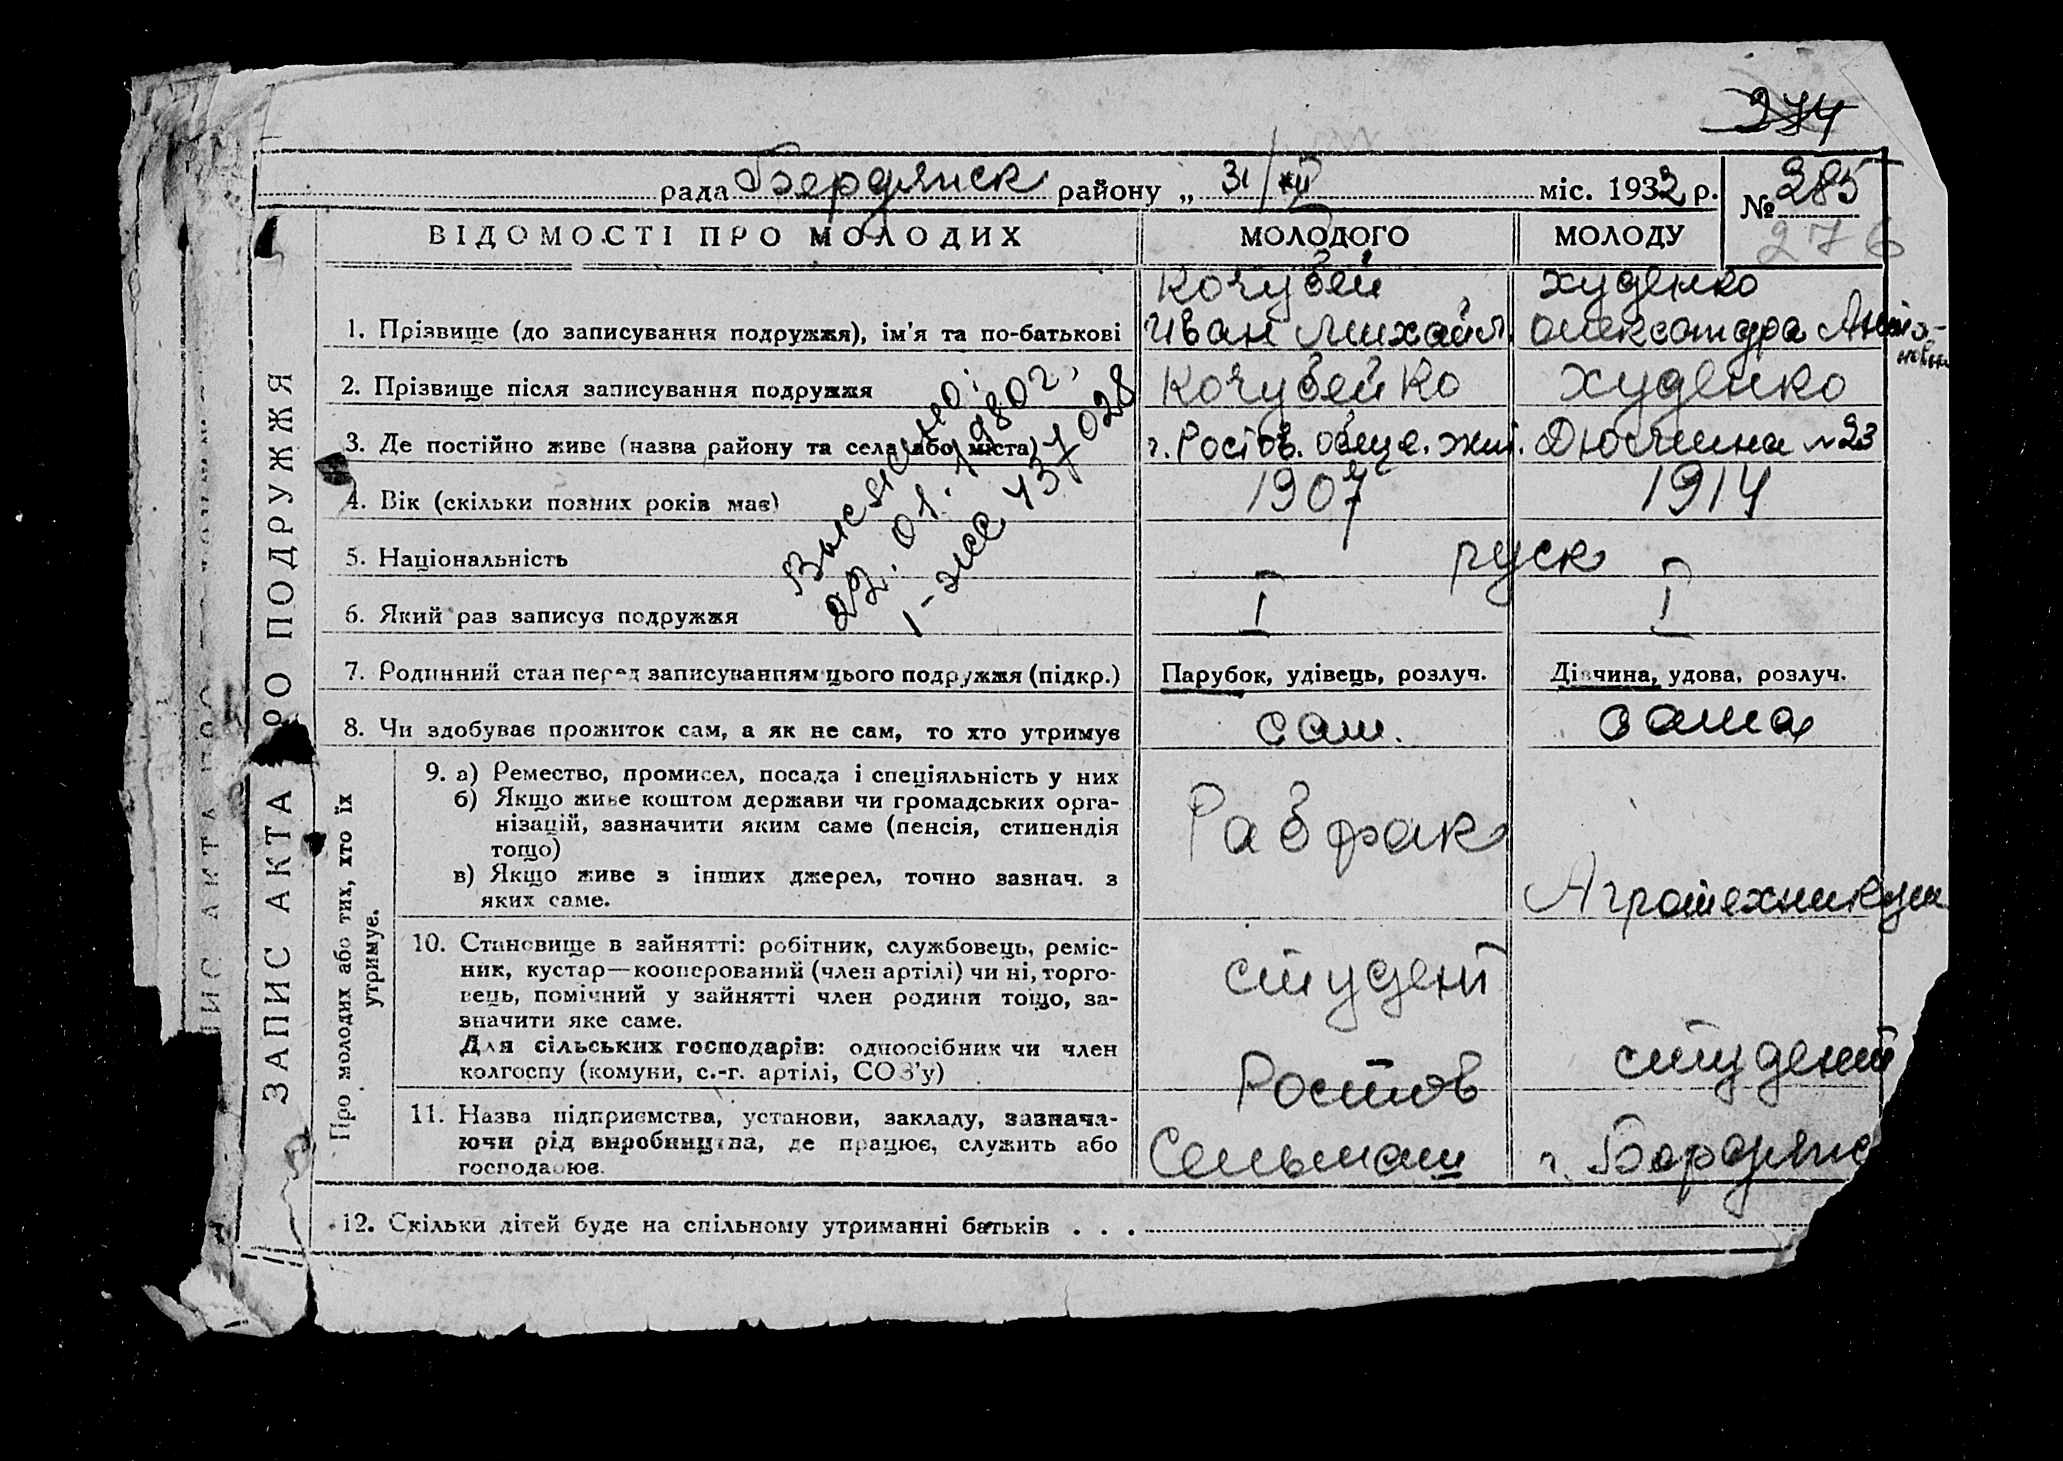 274
рада Бердянск району „ 31/XII міс. 1932 р. № 285
276
ВІДОМОСТІ ПРО МОЛОДИХ МОЛОДОГО МОЛОДУ
ЗАПИС АКТА ПРО ПОДРУЖЖЯ
Кочубей Худенко
1. Прізвище (до записування подружжя), ім'я та по-батькові Иван Михайл. Александра Антоновна
2. Прізвище після записування подружжя Кочубейко Худенко
3. Де постійно живе (назва району та села або міста) г. Ростов. общ. жит. Дюмина №23
4. Вік (скільки повних років має) 1907 1914
5. Національність руск
6. Який раз записує подружжя I I
7. Родинний стан перед записуванням цього подружжя (підкр.) Парубок, удівець, розлуч. Дівчина, удова, розлуч.
8. Чи здобуває прожиток сам, а як не сам, то хто утримує сам. сама
22.01.1980г.
437028
Про молодих або тих, хто їх
утримує.
9. а) Ремество, промисел, посада і спеціяльність у них
б) Якщо живе коштом держави чи громадських орга-
нізацій, зазначити яким саме (пенсія, стипендія
тощо)
в) Якщо живе з інших джерел, точно зазнач. з
яких саме.
Рабфак
Агротехникум
10. Становище в зайнятті: робітник, службовець, реміс-
ник, кустар—кооперований (член артілі) чи ні, торго-
вець, помічний у зайнятті член родини тощо, за-
значити яке саме.
Для сільських господарів: одноосібник чи член
колгоспу (комуни, с.-г. артілі, СОЗ'у)
студент
студент
11. Назва підприємства, установи, закладу, зазнача-
ючи рід виробництва, де працює, служить або
господарює.
Ростов
Сельмаш
г. Бердянс
12. Скільки дітей буде на спільному утриманні батьків . . .